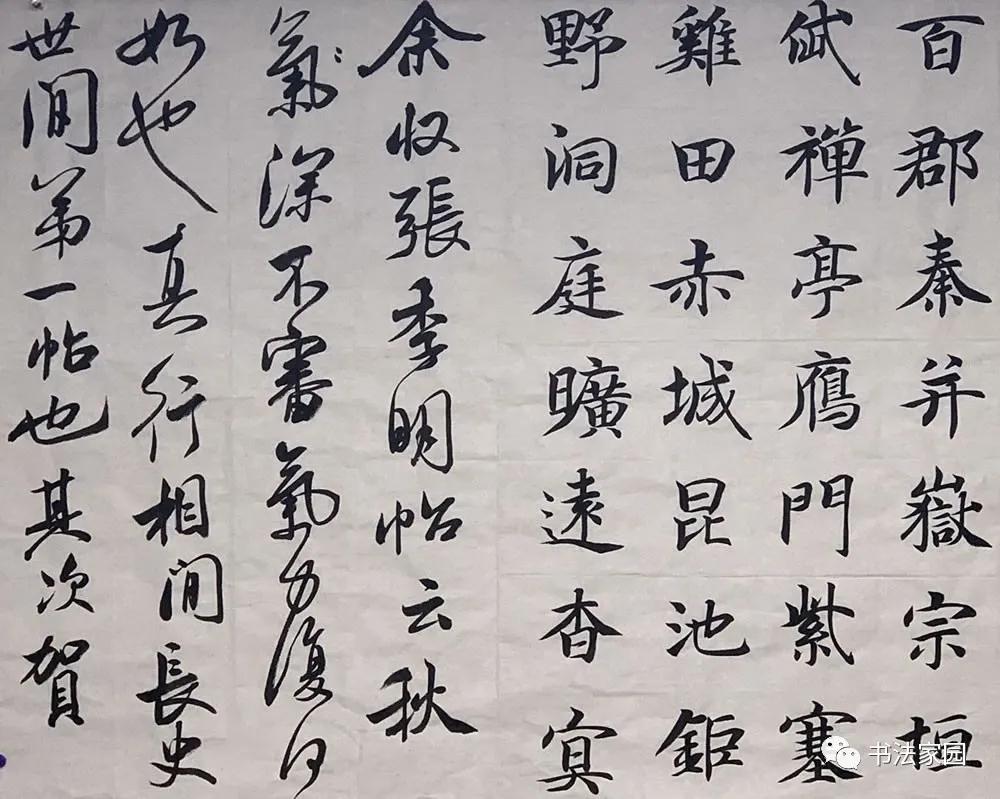 百郡秦并嶽宗桓
岱禪亭鴈門紫塞
雞田赤城昆池鉅
野洞庭曠遠杳冥
余收張季明帖云秋
氣深不審氣力復何
如也真行相間長史
世間第一帖也其次賀
书法家园